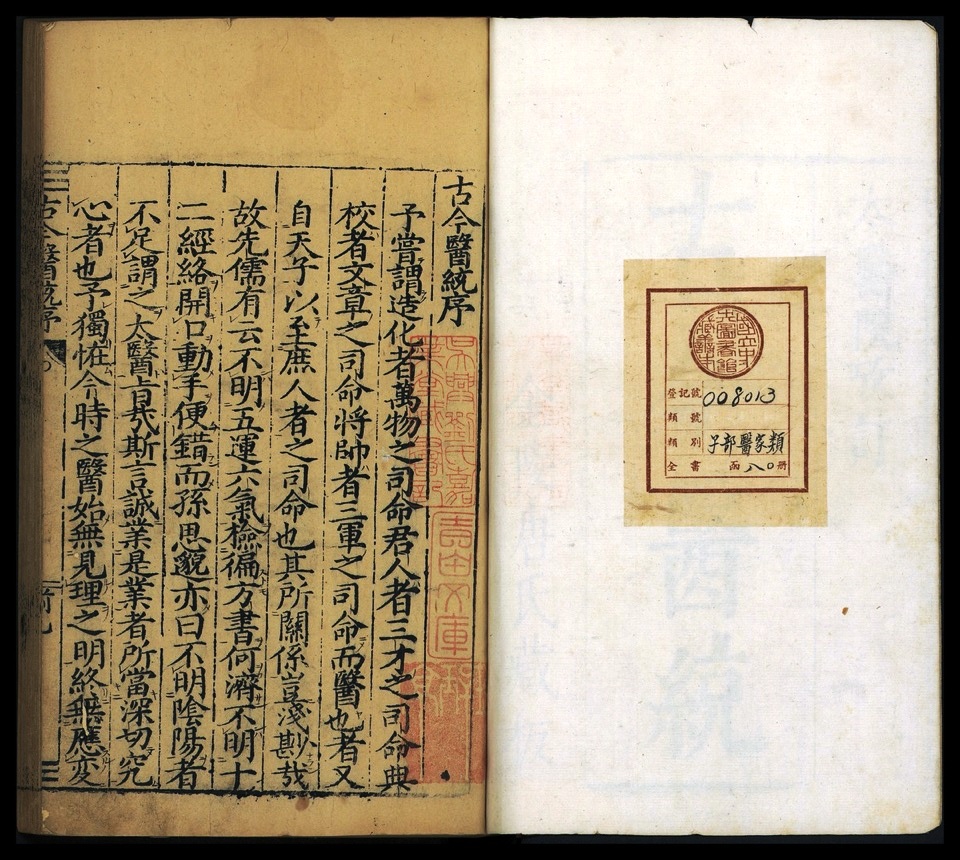 登記號 008013
類號
類別 子部醫家類
全書 函八〇册
古今醫統序
予嘗謂造化者萬物之司命君人者三才之司命典
校者文章之司命將帥者三軍之司命而醫也者又
自天子以至庶人者之司命也其所關係豈淺尠哉
故先儒有云不明五運六氣檢徧方書何濟不明十
二經絡開口動手便錯而孫思邈亦曰不明陰陽者
不足謂之太醫旨哉斯言誠業是業者所當深切究
心者也予獨恠今時之醫始無見理之明終無應変
古今醫統序
吳興劉氏嘉
業堂藏書記
吉田文庫